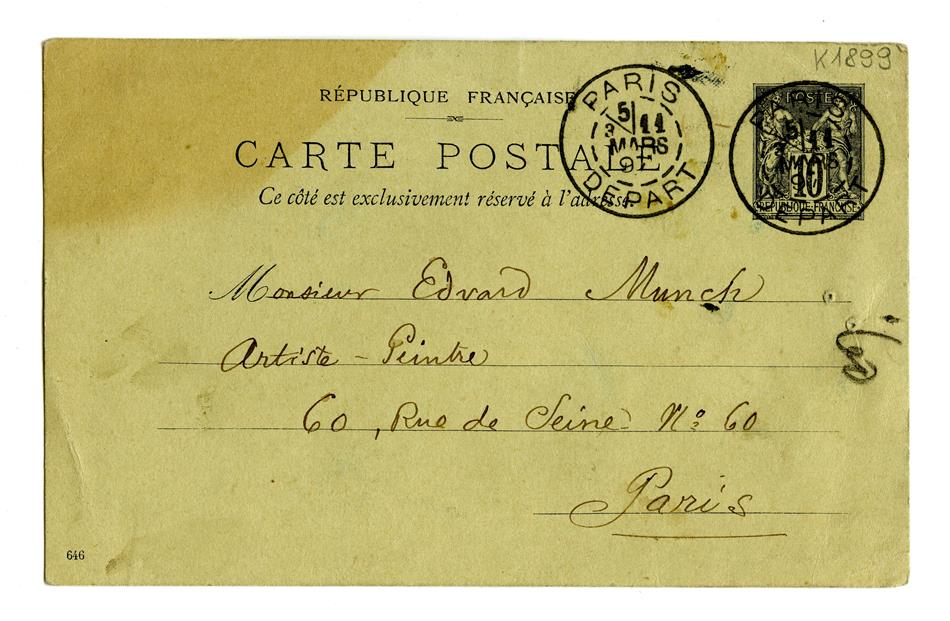 K1899
RÉPUBLIQUE FRANÇAISE
CARTE POSTALE
Ce côté est exclusivement réservé à l'adresse.
PARIS
5 11
MARS
DEPART
POSTES
10
REPUBLIQUE FRANÇAISE
PARIS
5 11
MARS
DEPART
Monsieur Edvard Munch
Artiste-Peintre
60, Rue de Seine No: 60
Paris
646